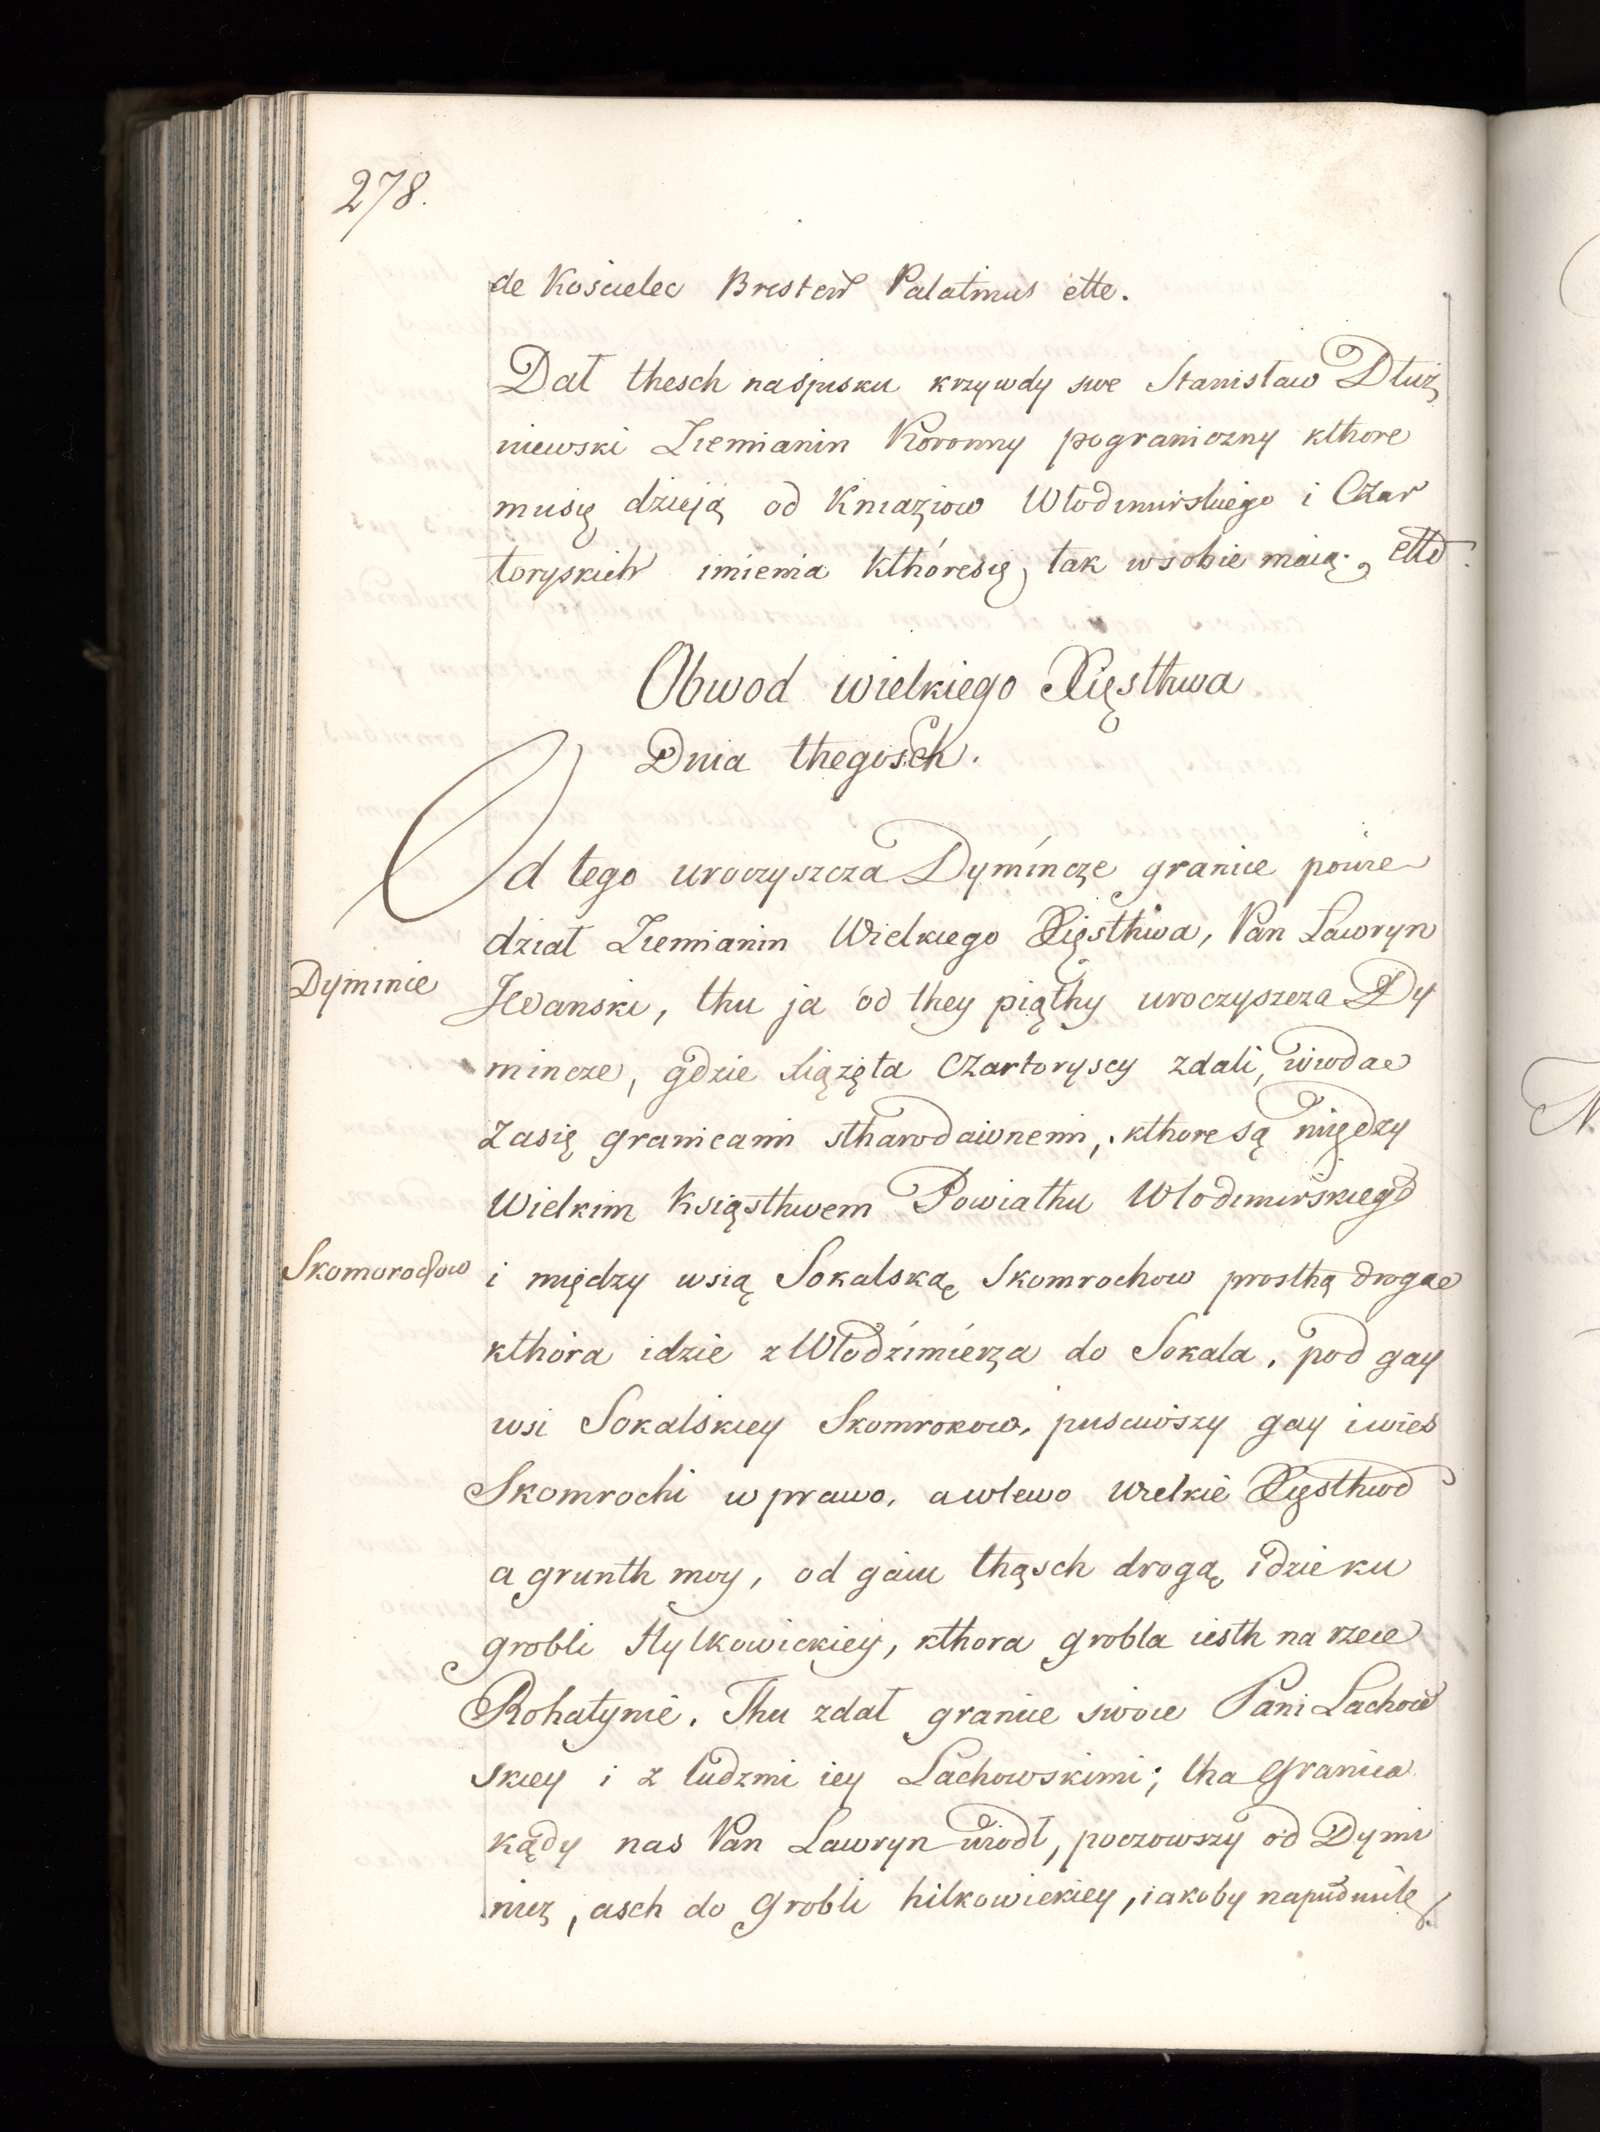 278.
de Koscielec Bresteń Palatinus ette.
Dał thesch naspisku krzywdy swe Stanisław Dłuż
niewski Ziemianin Koronny pograniczny kthore
musię dzieją od Kniaziow Włodimirskiego i Czar
toryskich imienia kthóresię tak wsobie maią. ettc.
Obwod wielkiego Xięsthwa
Dnia thegosch.
Od tego uroczyszcza Dymincze granice powie
dział Ziemianin Wielkiego Xięsthwa, Pan Lawryn
Dyminie
Iwanski, thu ja od they piąthy uroczyszcza Dy
mincze, gdzie xiązęta Czartoryscy zdali, wiodae
zasię granicami sthawodawnemi, kthore są między
Wielkim Książthwem Powiathu Włodimirskiego
Skomorochow
i między wsią Sokalską Skomrochow prosthą drogae
kthóra idzie z Włodzimierza do Sokala, pod gay
wsi Sokalskiey Skomrokow, pusciwszy gay i wies
Skomrochi w prawo, awlewo wielkie Xięsthwo
a grunth moy, od gaiu thąsch drogą idzie ku
grobli Hylkowickiey, kthora grobla iesth na rzece
Rohatynie. Thu zdał granice swoie Pani Lachow
skiey i z ludzmi iey Lachowskimi; tha granica
kądy nas Pan Lawryn wiodł, poczowszy od Dymi
nicz, asch do grobli hilkowickiey, iakoby napułmile